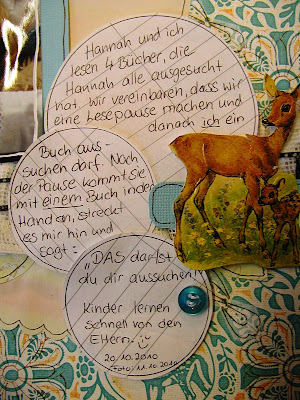 Hannah und ich
lesen 4 Bücher, die
Hannah alle ausgesucht
hat. Wir vereinbaren, dass wir
eine Lesepause machen und
danach ich ein
Buch aus-
suchen darf. Nach
der Pause kommt sie
mit einem Buch in der
Hand an, streckt
es mir hin und
sagt:
„DAS darfst
du dir aussuchen!"
Kinder lernen
schnell von den
Eltern. :-)
20.10.2010
(Foto: 11.10.2010)